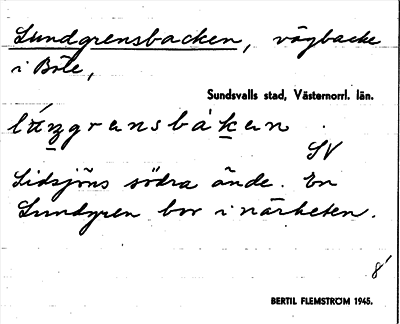 Lundgrensbacken, vägbacke
i Böle,
Sundsvalls stad, Västernorrl. län.
SV
Sidsjöns södra ände. En
Lundgren bor i närheten.
8
BERTIL FLEMSTRÖM 1945.